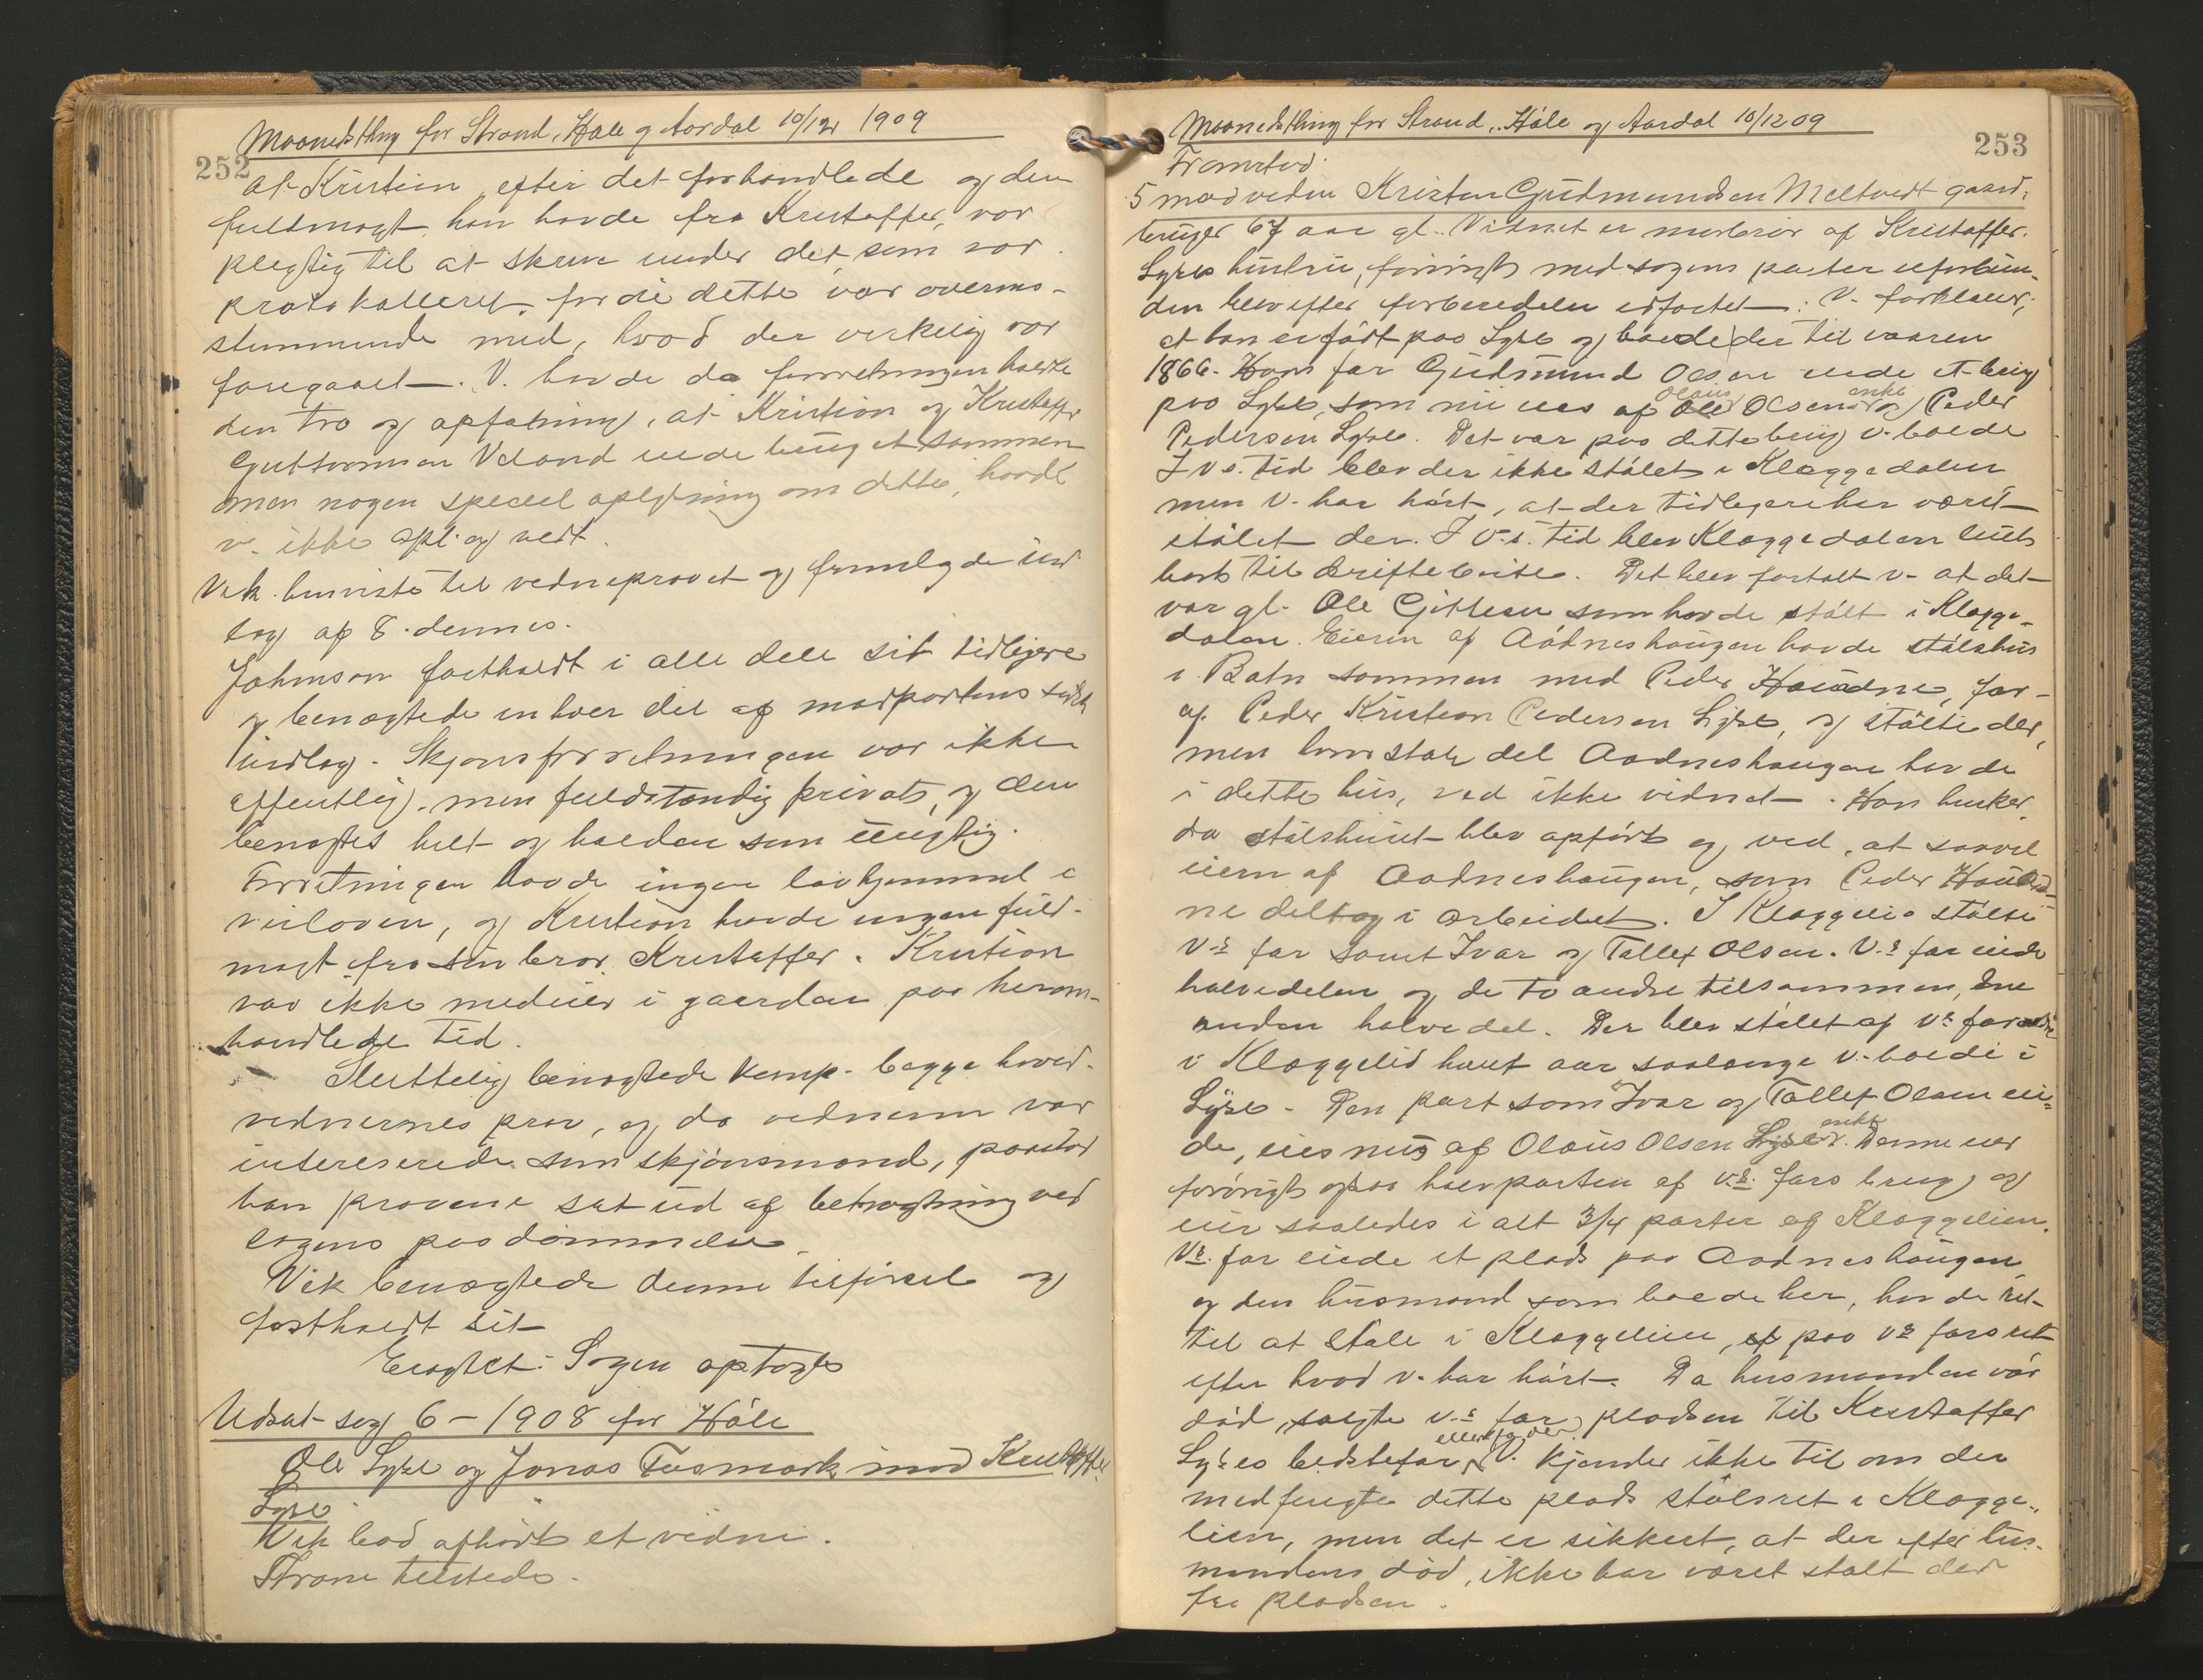 Maanedsthing for Strand, Høle og Aardal 10/12 1909
252
at Kristian, efter det forhandlede og den
fuldmagt, han havde fra Kristoffer, var
plegtig til at skrive under det, som var
protokolleret, fordi dette var overens-
stemmende med, hvad der virkelig var
foregaaet. V. havde da forretningen holdtes
den tro og opfatning, at Kristian og Kristoffer
Guttormsen Veland eiede bruget sammen
men nogen speciel oplysning om dette, havde
v. ikke. Opl. og vedt.
Vik henviste til vidneprovet og fremlagde ind-
læg af 8. dennes.
Johnson fastholdt i alle dele sit tidligere
og benægtede enhver del af modpartens sidste
indlæg. Skjønsforretningen var ikke
offentlig, men fuldstændig privat, og den
benægtes helt og holden som ugyldig.
Forretningen havde ingen lovhjemmel i
veiloven, og Kristian havde ingen fuld-
magt fra sin bror Kristoffer. Kristian
var ikke medeier i gaarden paa herom-
handlede tid.
Sluttelig benægtede komp. begge hoved-
vidnernes prov, og da vidnerne var
interesserede som skjønsmænd, paastod
han provene sat ud af betragtning ved
sagens paadømmelse.
Vik benægtede denne tilførsel og
fastholdt sit
Eragtet: Sagen optages
Udsat sag 6 - 1908 for Høle
Ole Lyse og Jonas Fosmark mod Kristoffer
Lyse
Vik bad afhørt et vidne.
Thrane tilstede.
Maanedsthing for Strand, Høle og Aardal 10/12 09
253
Fremstod
5 modvidne Kristen Gudmundsen Meltvedt gaard-
bruger 67 aar gl. Vidnet er morbror af Kristoffer
Lyses hustru, forøvrigt med sagens parter uforbun-
den blev efter forberedelse edfæstet. V. forklarer,
at han er født paa Lyse og boede der til vaaren
1866. Hans far Gudmund Olsen eiede et brug
paa Lyse, som nu eies af Olaus Olsens enke og Peder
Pedersen Lyse. Det var paa dette brug v. boede
I v.s. tid blev der ikke stølet i Kloggedalen
men v. har hørt, at der tidligere har været
stølet der. I v.s. tid blev Kloggedalen leiet
bort til driftebeite. Det blev fortalt v. at det
var gl. Ole Gittesen som havde stølt i Klogge-
dalen. Eieren af Aadneshaugen havde stølshus
i Botn sammen med Peder Haaadne, far
af Peder Kristian Pedersen Lyse, og stølte der,
men hvor stor del Aadneshaugen havde
i dette hus, ved ikke vidnet. Han husker
da stølshuset blev opført og ved, at saavel
eieren af Aadneshaugen, som Peder Haaad-
ne deltog i arbeidet. I Kloggelie stølte
v.s far samt Ivar og Tollef Olsen. V.s far eiede
halvedelen og de to andre tilsammen, den
anden halvedel. Der blev stølet af v.s forældre
i Kloggelid hvert aar saalænge v. boede i
Lyse. Den part som Ivar og Tollef Olsen eie-
de, eies nu af Olaus Olsen Lyses enke. Denne eier
forøvrigt ogsaa halvparten af v.s. fars brug og
eier saaledes i alt 3/4 parter af Kloggelien.
V.s. far eiede et plads paa Aadneshaugen
og den husmand som boede her, havde ret
til at støle i Kloggelien, paa v.s fars ret
efter hvad v. har hørt. Da husmanden var
død, solgte v.s far pladsen til Kristoffer
Lyses bedstefar eller far. V. kjender ikke til om der
medfulgte dette plads stølsret i Klogge-
lien, men det er sikkert, at der efter hus-
mandens død, ikke har været stølt der
fra pladsen.